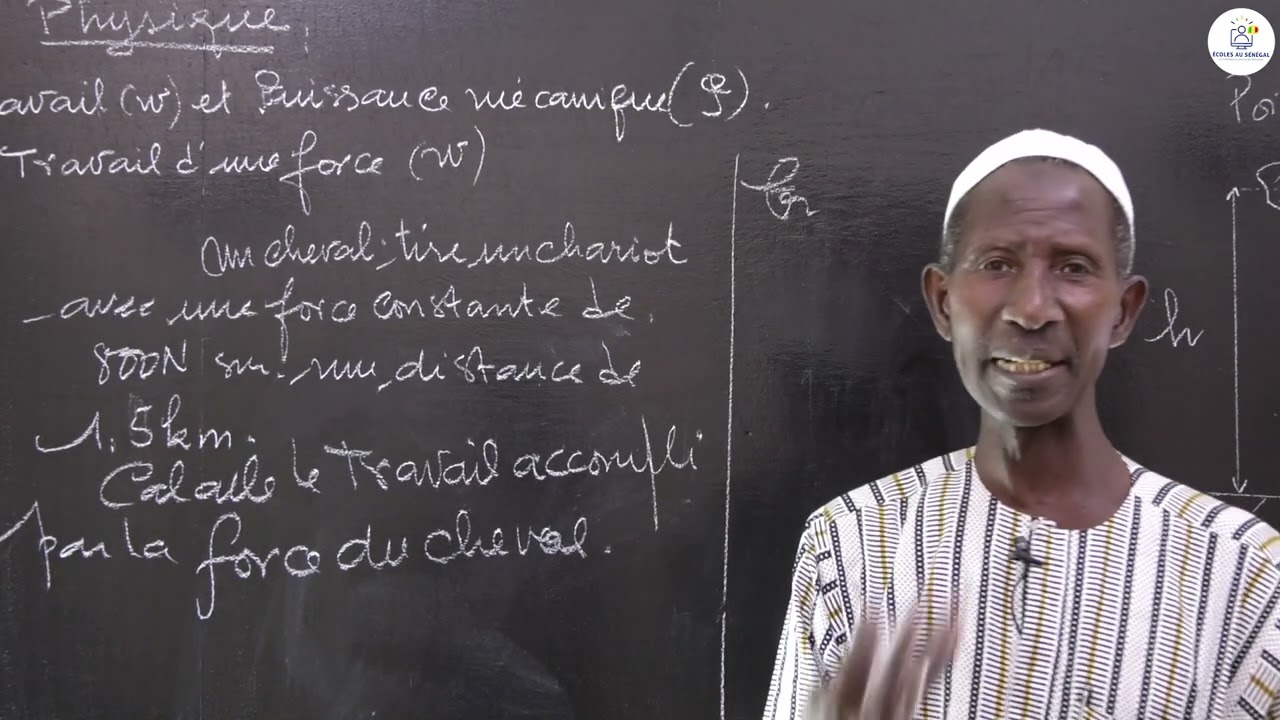 Physique
avail (W) et Puissance mécanique (P).
Travail d'une force (W)
un cheval tire un chariot
avec une force constante de
800N sur une distance de
1,5km.
Calcule le Travail accompli
par la force du cheval.
Poi
h
ÉCOLES AU SÉNÉGAL